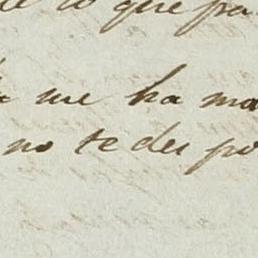 lo que pa
me ha ma
no te des po